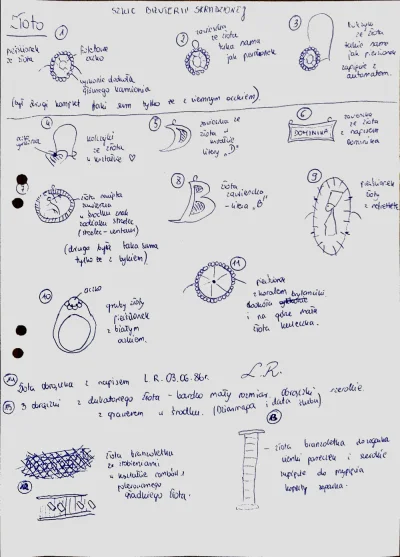 SZKIC BIŻUTERII SKRADZIONEJ
Złoto
1
pierścionek
ze złota
fioletowe
oczko
wykonanie dookoła
głównego kamienia
2
zawieszka
ze złota
taka sama
jak pierścionek
3
kolczyki
ze złota
takie same
jak pierścionek
zapięcie z
automatem.
(był drugi komplet taki sam tylko że z ciemnym oczkiem)
4
kolczyki
ze złota
w kształcie ♡
5
zawieszka ze
złota w
kształcie
litery "D"
6
DOMINIKA
zawieszka
ze złota
z napisem
Dominika
7
złota
zawieszka
w środku znak
zodiaku strzelec
(strzelec - centaur)
(druga była taka sama
tylko że z bykiem)
8
złota
zawieszka
- litera "B"
9
pierścionek
złoty
10
oczko
gruby złoty
pierścionek
z białym
oczkiem.
11
pierścionek
z koralem
dookoła
i na górze mała
złota kuleczka.
Złota obrączka z napisem L.R. 03.06.86r.
L.R.
3 obrączki z dukatowego złota - bardzo mały rozmiar. Obrączki szerokie
z grawerem w środku. (Dominika i data ślubu)
złota bransoletka
ze zdobieniami
w kształcie rombów z
polerowanego
gładkiego złota.
- złota bransoletka do zegarka
zapięcie do
koperty zegarka.